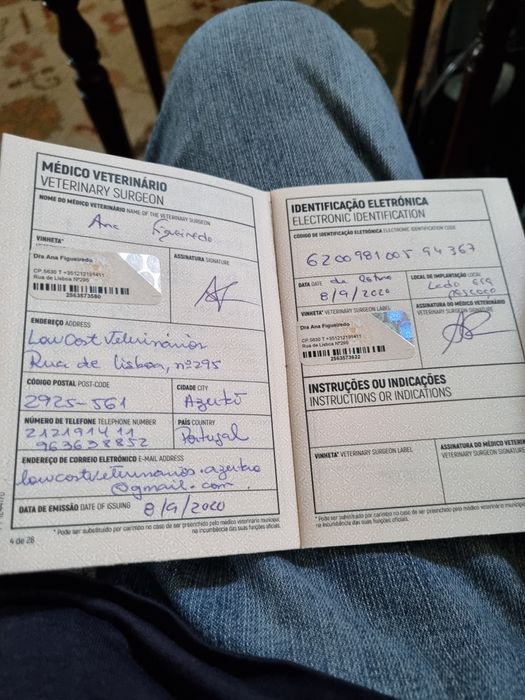 MÉDICO VETERINÁRIO
VETERINARY SURGEON
NOME DO MÉDICO VETERINÁRIO NAME OF THE VETERINARY SURGEON
Ana Figueiredo
VINHETA*
ASSINATURA SIGNATURE
Dra Ana Figueiredo
CP.5630 T +351212191411
Rua de Lisboa Nº295
2563573580
ENDEREÇO ADDRESS
LowCost Veterinários
Rua de Lisboa, nº295
CÓDIGO POSTAL POST-CODE
CIDADE CITY
2925-561
Azeitão
NÚMERO DE TELEFONE TELEPHONE NUMBER
PAÍS COUNTRY
212191411
963638852
Portugal
ENDEREÇO DE CORREIO ELETRÓNICO E-MAIL ADDRESS
lowcostveterinarios.azeitao
@gmail.com
DATA DE EMISSÃO DATE OF ISSUING
8/9/2020
* Pode ser substituído por carimbo no caso de ser preenchido pelo médico veterinário municipal
na incumbência das suas funções oficiais.
4 de 28
IDENTIFICAÇÃO ELETRÓNICA
ELECTRONIC IDENTIFICATION
CÓDIGO DE IDENTIFICAÇÃO ELETRÓNICA ELECTRONIC IDENTIFICATION CODE
620098100594367
DATA DATE
de
8/9/2020
LOCAL DE IMPLANTAÇÃO LOCAL
Lado
pescoço
VINHETA* VETERINARY SURGEON LABEL
ASSINATURA DO MÉDICO VETERINÁRIO
VETERINARY SURGEON SIGNATURE
Dra Ana Figueiredo
CP.5630 T +351212191411
Rua de Lisboa Nº295
2563573622
INSTRUÇÕES OU INDICAÇÕES
INSTRUCTIONS OR INDICATIONS
VINHETA* VETERINARY SURGEON LABEL
ASSINATURA DO MÉDICO VETERI
VETERINARY SURGEON SIGNATURE
* Pode ser substituído por carimbo no caso de ser preenchido pelo médico veterinário
na incumbência das suas funções oficiais.